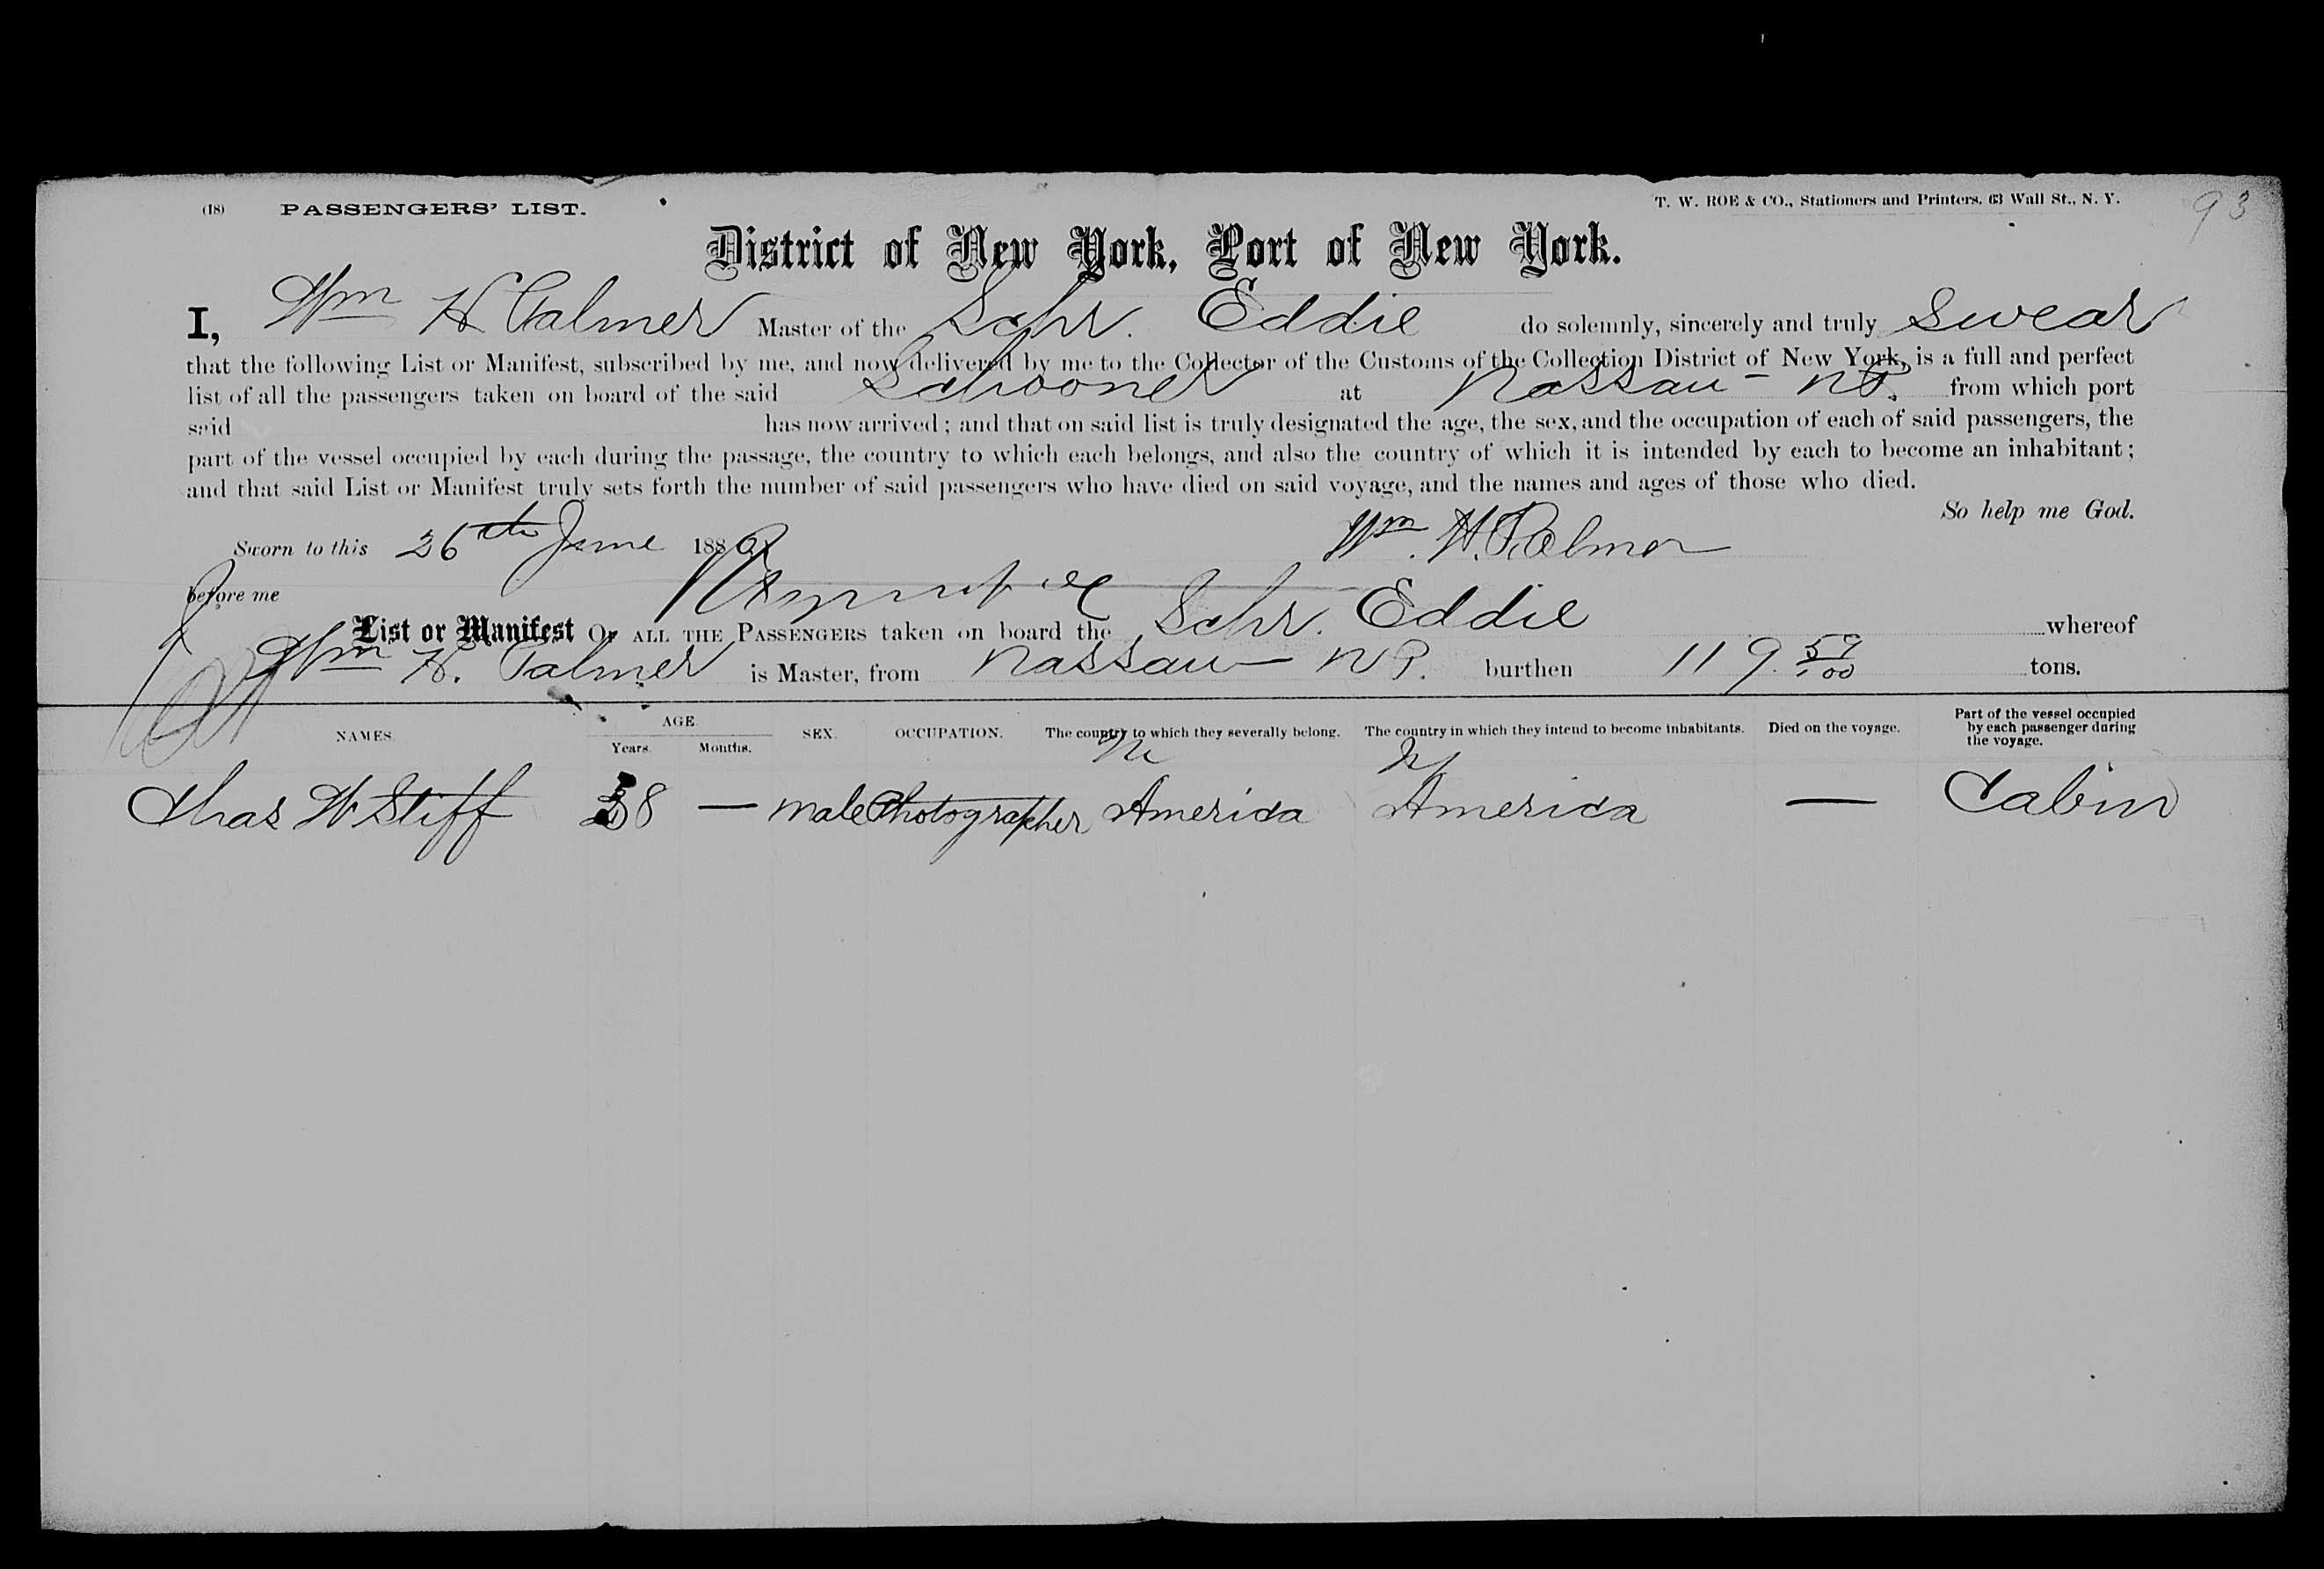 (18) PASSENGERS' LIST. T. W. ROE & CO., Stationers and Printers, 63 Wall St., N. Y. 93
District of New York, Port of New York.
I, Wm H Palmer Master of the Schr. Eddie do solemnly, sincerely and truly Swear
that the following List or Manifest, subscribed by me, and now delivered by me to the Collector of the Customs of the Collection District of New York, is a full and perfect
list of all the passengers taken on board of the said Schooner at Nassau - N P. from which port
said has now arrived; and that on said list is truly designated the age, the sex, and the occupation of each of said passengers, the
part of the vessel occupied by each during the passage, the country to which each belongs, and also the country of which it is intended by each to become an inhabitant;
and that said List or Manifest truly sets forth the number of said passengers who have died on said voyage, and the names and ages of those who died.
So help me God.
Sworn to this 26th June 1886 Wm. H. Palmer
before me
List or Manifest OF ALL THE PASSENGERS taken on board the Schr. Eddie whereof
Wm H. Palmer is Master, from Nassau - N P. burthen 119 57/100 tons.
NAMES. AGE. Years. Months. SEX. OCCUPATION. The country to which they severally belong. The country in which they intend to become inhabitants. Died on the voyage. Part of the vessel occupied by each passenger during the voyage.
Chas W Stiff 38 — male Photographer America America — Cabin